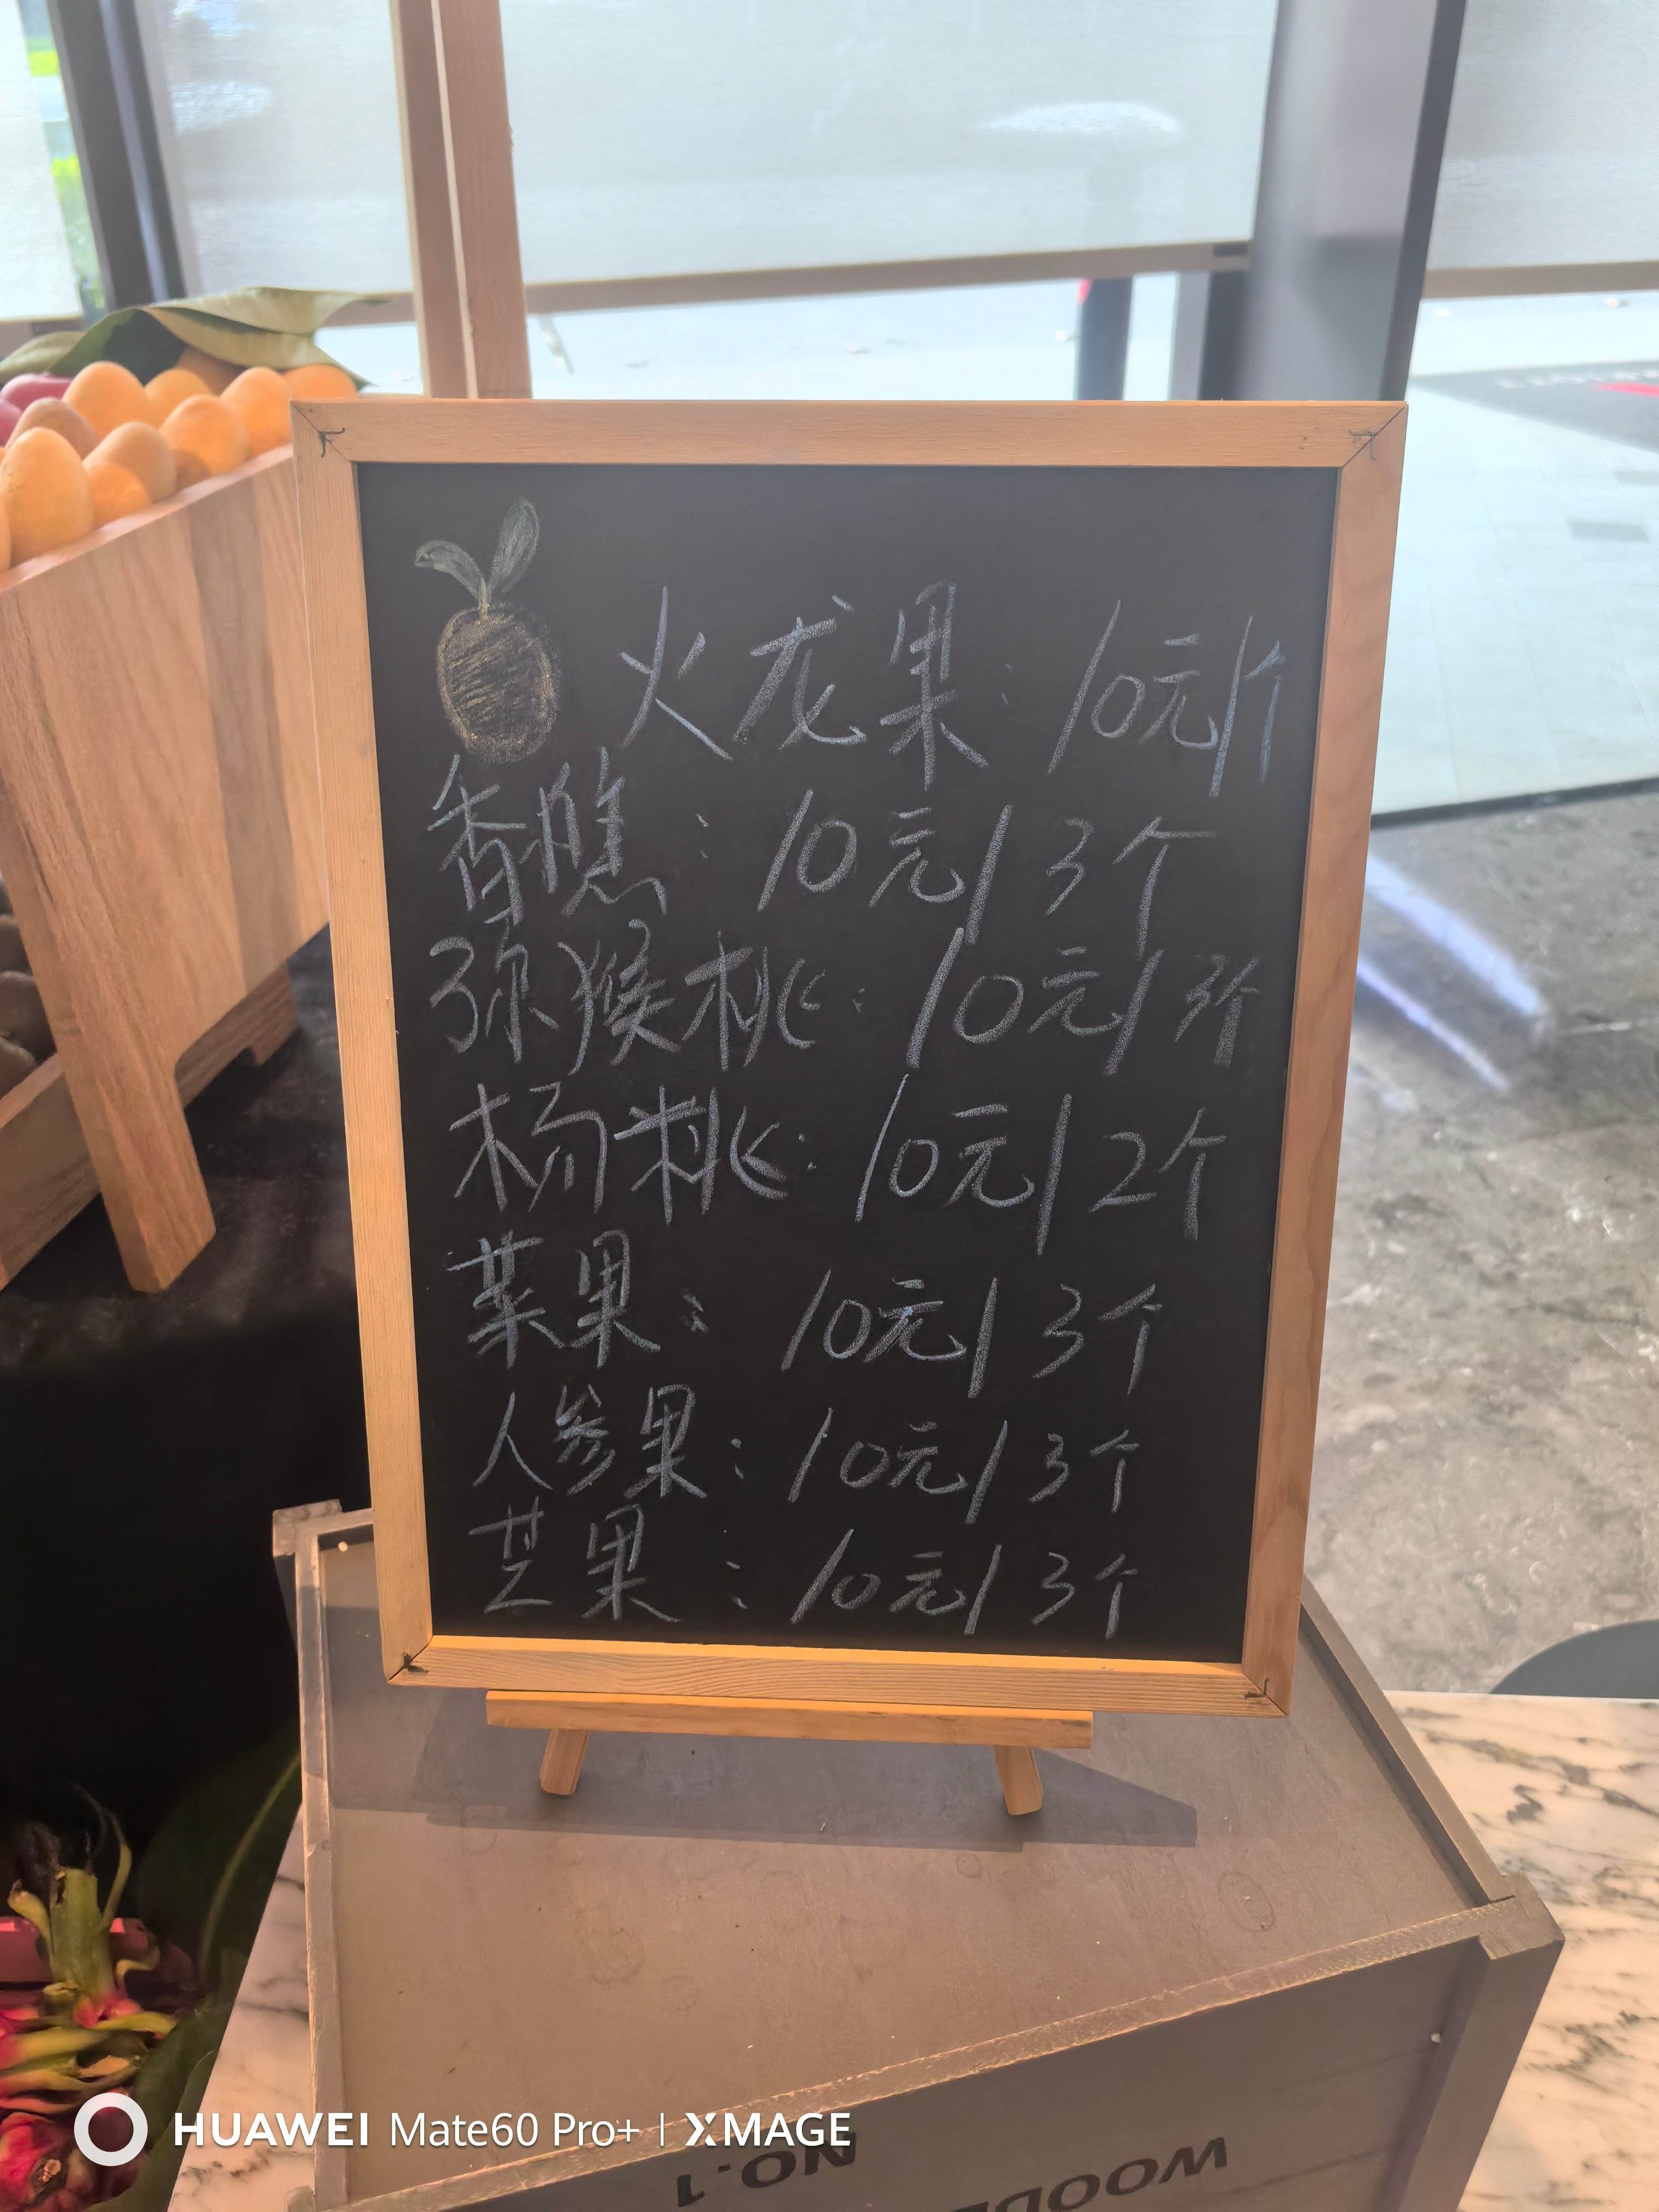 火龙果：10元/个
香蕉：10元/3个
弥猴桃：10元/3个
杨桃：10元/2个
苹果：10元/3个
人参果：10元/3个
芒果：10元/3个
HUAWEI Mate60 Pro+ | XMAGE
NO.1